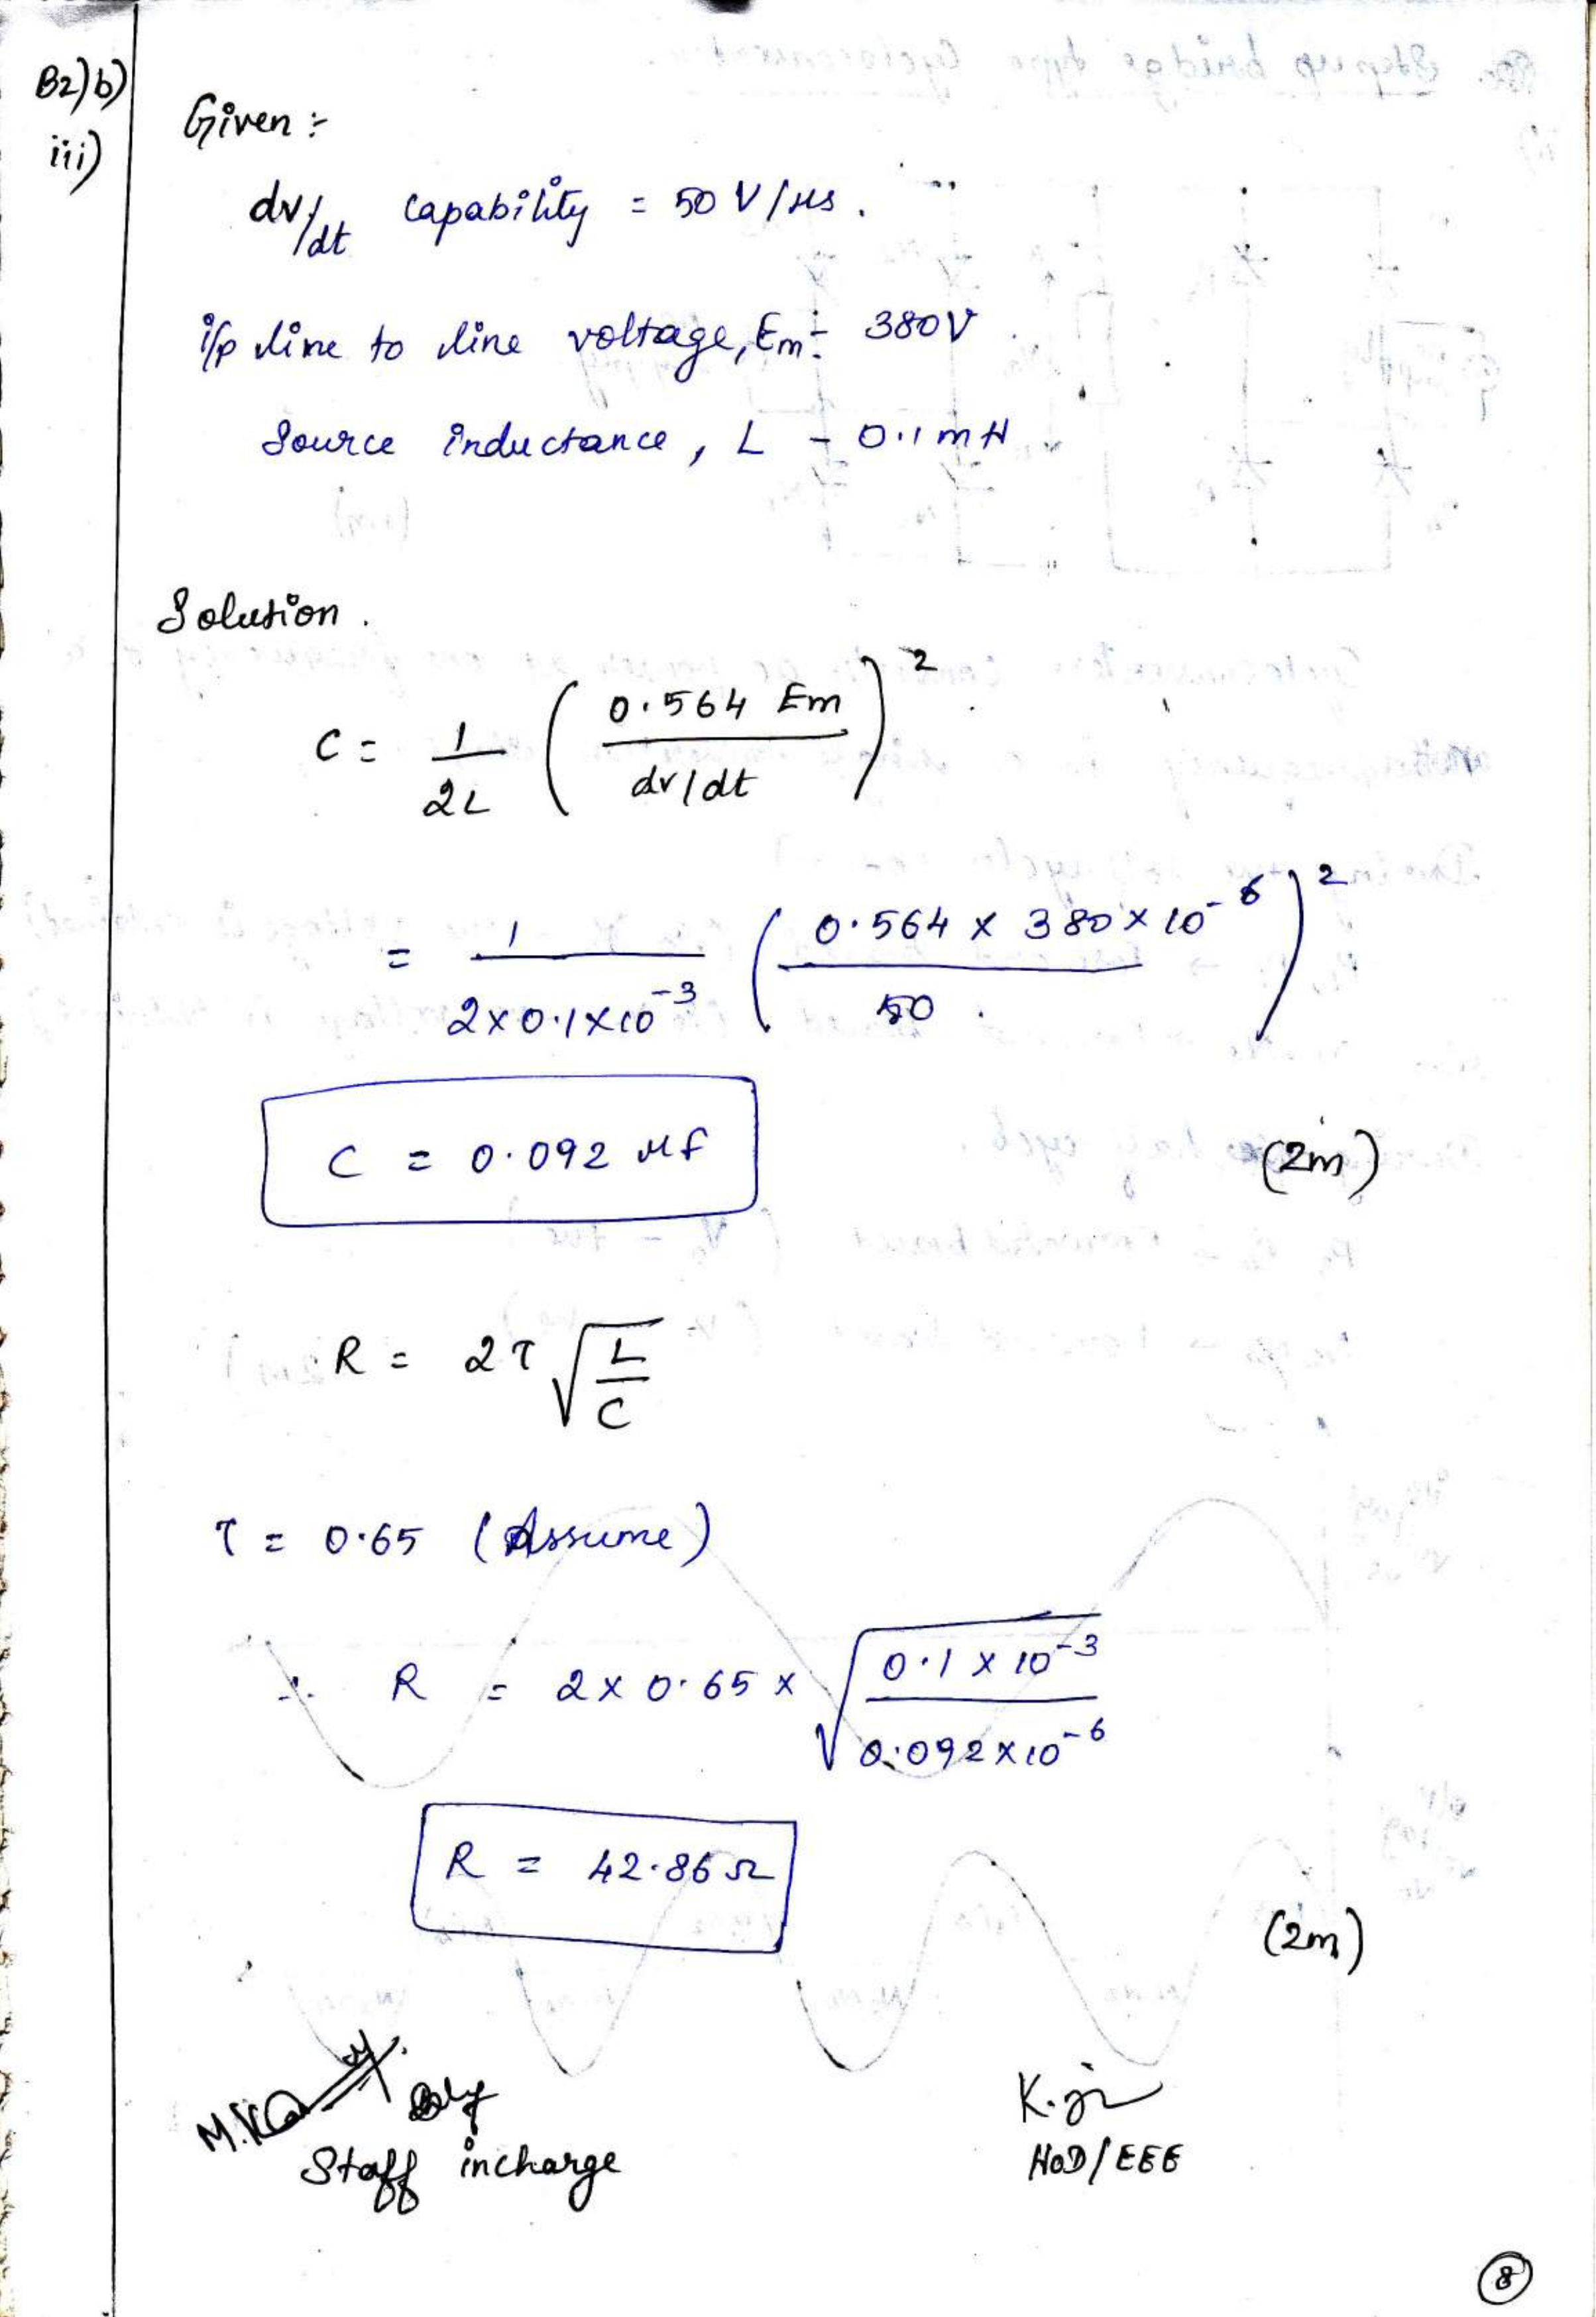 B2)b)
iii)
Given :-
dv/dt capability = 50 V/μs.
i/p line to line voltage, Em = 380V
Source inductance, L - 0.1mH
Solution.
C = 1/2L (0.564 Em / dv/dt)²
= 1/(2x0.1x10⁻³) (0.564 x 380 x 10⁻⁶ / 50.)²
C = 0.092 μf
(2m)
R = 2τ √(L/C)
τ = 0.65 (Assume)
∴ R = 2 x 0.65 x √(0.1 x 10⁻³ / 0.092 x 10⁻⁶)
R = 42.86 Ω
(2m)
Staff incharge
HOD/EEE
8